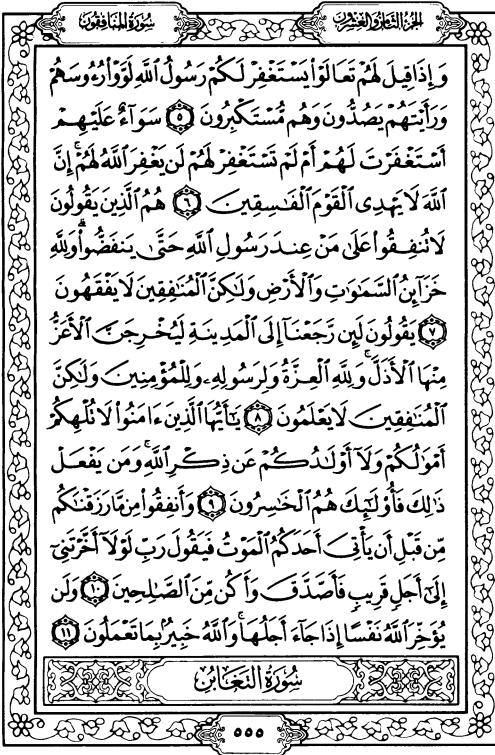 الجزء الثامن والعشرون
سورة المنافقون
وَإِذَا قِيلَ لَهُمْ تَعَالَوْا۟ يَسْتَغْفِرْ لَكُمْ رَسُولُ ٱللَّهِ لَوَّوْا۟ رُءُوسَهُمْ
وَرَأَيْتَهُمْ يَصُدُّونَ وَهُم مُّسْتَكْبِرُونَ ۝٥ سَوَآءٌ عَلَيْهِمْ
أَسْتَغْفَرْتَ لَهُمْ أَمْ لَمْ تَسْتَغْفِرْ لَهُمْ لَن يَغْفِرَ ٱللَّهُ لَهُمْ ۚ إِنَّ
ٱللَّهَ لَا يَهْدِى ٱلْقَوْمَ ٱلْفَـٰسِقِينَ ۝٦ هُمُ ٱلَّذِينَ يَقُولُونَ
لَا تُنفِقُوا۟ عَلَىٰ مَنْ عِندَ رَسُولِ ٱللَّهِ حَتَّىٰ يَنفَضُّوا۟ ۗ وَلِلَّهِ
خَزَآئِنُ ٱلسَّمَـٰوَٰتِ وَٱلْأَرْضِ وَلَـٰكِنَّ ٱلْمُنَـٰفِقِينَ لَا يَفْقَهُونَ
۝٧ يَقُولُونَ لَئِن رَّجَعْنَآ إِلَى ٱلْمَدِينَةِ لَيُخْرِجَنَّ ٱلْأَعَزُّ
مِنْهَا ٱلْأَذَلَّ ۚ وَلِلَّهِ ٱلْعِزَّةُ وَلِرَسُولِهِۦ وَلِلْمُؤْمِنِينَ وَلَـٰكِنَّ
ٱلْمُنَـٰفِقِينَ لَا يَعْلَمُونَ ۝٨ يَـٰٓأَيُّهَا ٱلَّذِينَ ءَامَنُوا۟ لَا تُلْهِكُمْ
أَمْوَٰلُكُمْ وَلَآ أَوْلَـٰدُكُمْ عَن ذِكْرِ ٱللَّهِ ۚ وَمَن يَفْعَلْ
ذَٰلِكَ فَأُو۟لَـٰٓئِكَ هُمُ ٱلْخَـٰسِرُونَ ۝٩ وَأَنفِقُوا۟ مِن مَّا رَزَقْنَـٰكُم
مِّن قَبْلِ أَن يَأْتِىَ أَحَدَكُمُ ٱلْمَوْتُ فَيَقُولَ رَبِّ لَوْلَآ أَخَّرْتَنِىٓ
إِلَىٰٓ أَجَلٍ قَرِيبٍ فَأَصَّدَّقَ وَأَكُن مِّنَ ٱلصَّـٰلِحِينَ ۝١٠ وَلَن
يُؤَخِّرَ ٱللَّهُ نَفْسًا إِذَا جَآءَ أَجَلُهَا ۚ وَٱللَّهُ خَبِيرٌۢ بِمَا تَعْمَلُونَ ۝١١
سُورَةُ التَّغَابُنِ
٥٥٥